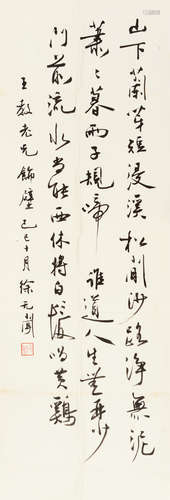 山下蘭芽短浸溪松間沙路淨無泥
蕭〻暮雨子規啼 誰道人生無再少
門前流水尚能西休將白髮唱黃鷄
老兄 壁 己巳十月徐无聞